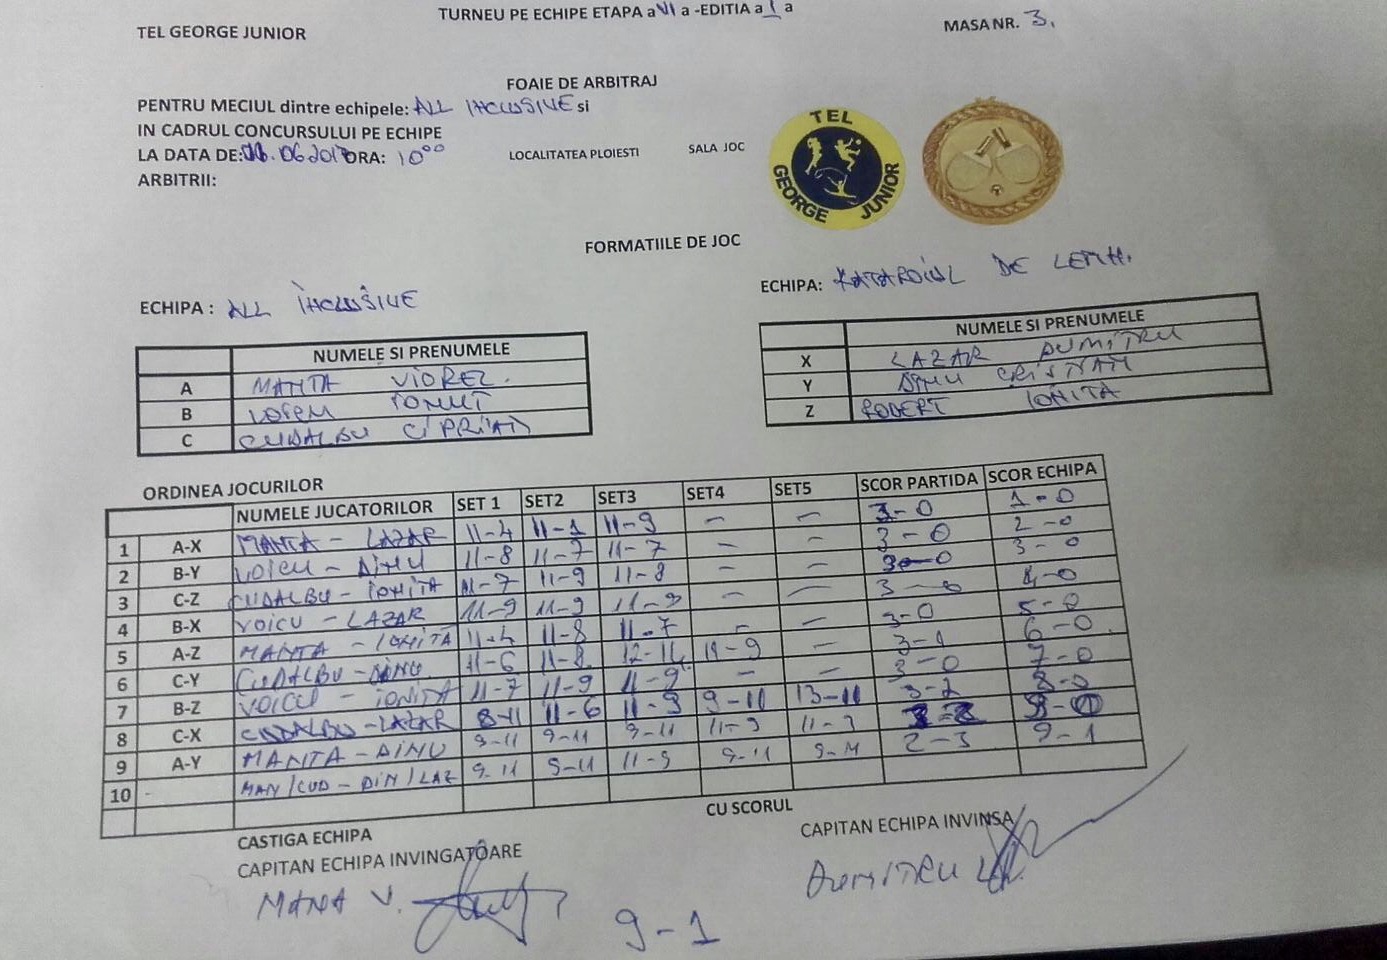 TURNEU PE ECHIPE ETAPA a VI a -EDITIA a I a
TEL GEORGE JUNIOR
MASA NR. 3.
FOAIE DE ARBITRAJ
PENTRU MECIUL dintre echipele: ALL INCLUSIVE si
IN CADRUL CONCURSULUI PE ECHIPE
LA DATA DE: .06.2017 ORA: 10⁰⁰ LOCALITATEA PLOIESTI SALA JOC
ARBITRII:
TEL
GEORGE JUNIOR
FORMATIILE DE JOC
ECHIPA : ALL INCLUSIVE
ECHIPA: DE LEMN.
NUMELE SI PRENUMELE
A MANTA VIOREL.
B IONUT
C CUDALBU CIPRIAN
NUMELE SI PRENUMELE
X LAZAR DUMITRU
Y DINU CRISTIAN
Z ROBERT IONITA
ORDINEA JOCURILOR
NUMELE JUCATORILOR SET 1 SET2 SET3 SET4 SET5 SCOR PARTIDA SCOR ECHIPA
1 A-X MANTA - LAZAR 11-4 11-1 11-9 - - 3-0 1-0
2 B-Y VOICU - DINU 11-8 11-7 11-7 - - 3-0 2-0
3 C-Z CUDALBU - IONITA 11-7 11-9 11-8 - - 3-0 3-0
4 B-X VOICU - LAZAR 11-9 11-9 11-9 - - 3-0 4-0
5 A-Z MANTA - IONITA 11-4 11-8 11-7 - - 3-0 5-0
6 C-Y CUDALBU - DINU 11-6 11-8 12-14 11-9 - 3-1 6-0
7 B-Z VOICU - IONITA 11-7 11-9 11-9 - - 3-0 7-0
8 C-X CUDALBU - LAZAR 8-11 11-6 11-9 9-11 13-11 3-2 8-0
9 A-Y MANTA - DINU 9-11 9-11 9-11 11-9 11-9
10 - MAN/CUD - DIN/LAZ 9-11 9-11 11-9 9-11 9-11 2-3 9-1
CASTIGA ECHIPA
CU SCORUL
CAPITAN ECHIPA INVINGATOARE
CAPITAN ECHIPA INVINSA
MANTA V.
DUMITRU
9-1